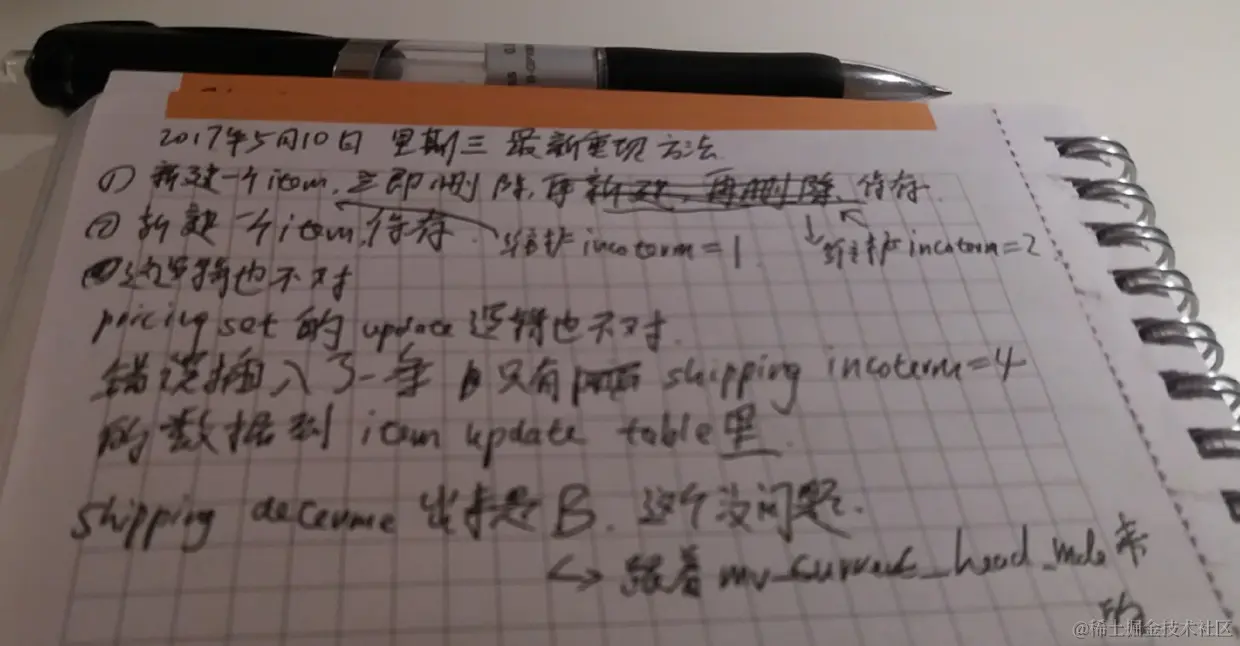 2017年5月10日 星期三 最新重现方法
① 新建一个item,立即删除,再新建,再删除,保存.
② 新建一个item,保存. 维护incoterm=1. 维护incoterm=2
这逻辑也不对
pricing set 的 update 逻辑也不对.
错误插入了一条 只有 shipping incoterm=4
的数据到 item update table里.
shipping 出来是B. 这个没问题.
↔ 跟着mv_current_head_mode来
的
@稀土掘金技术社区